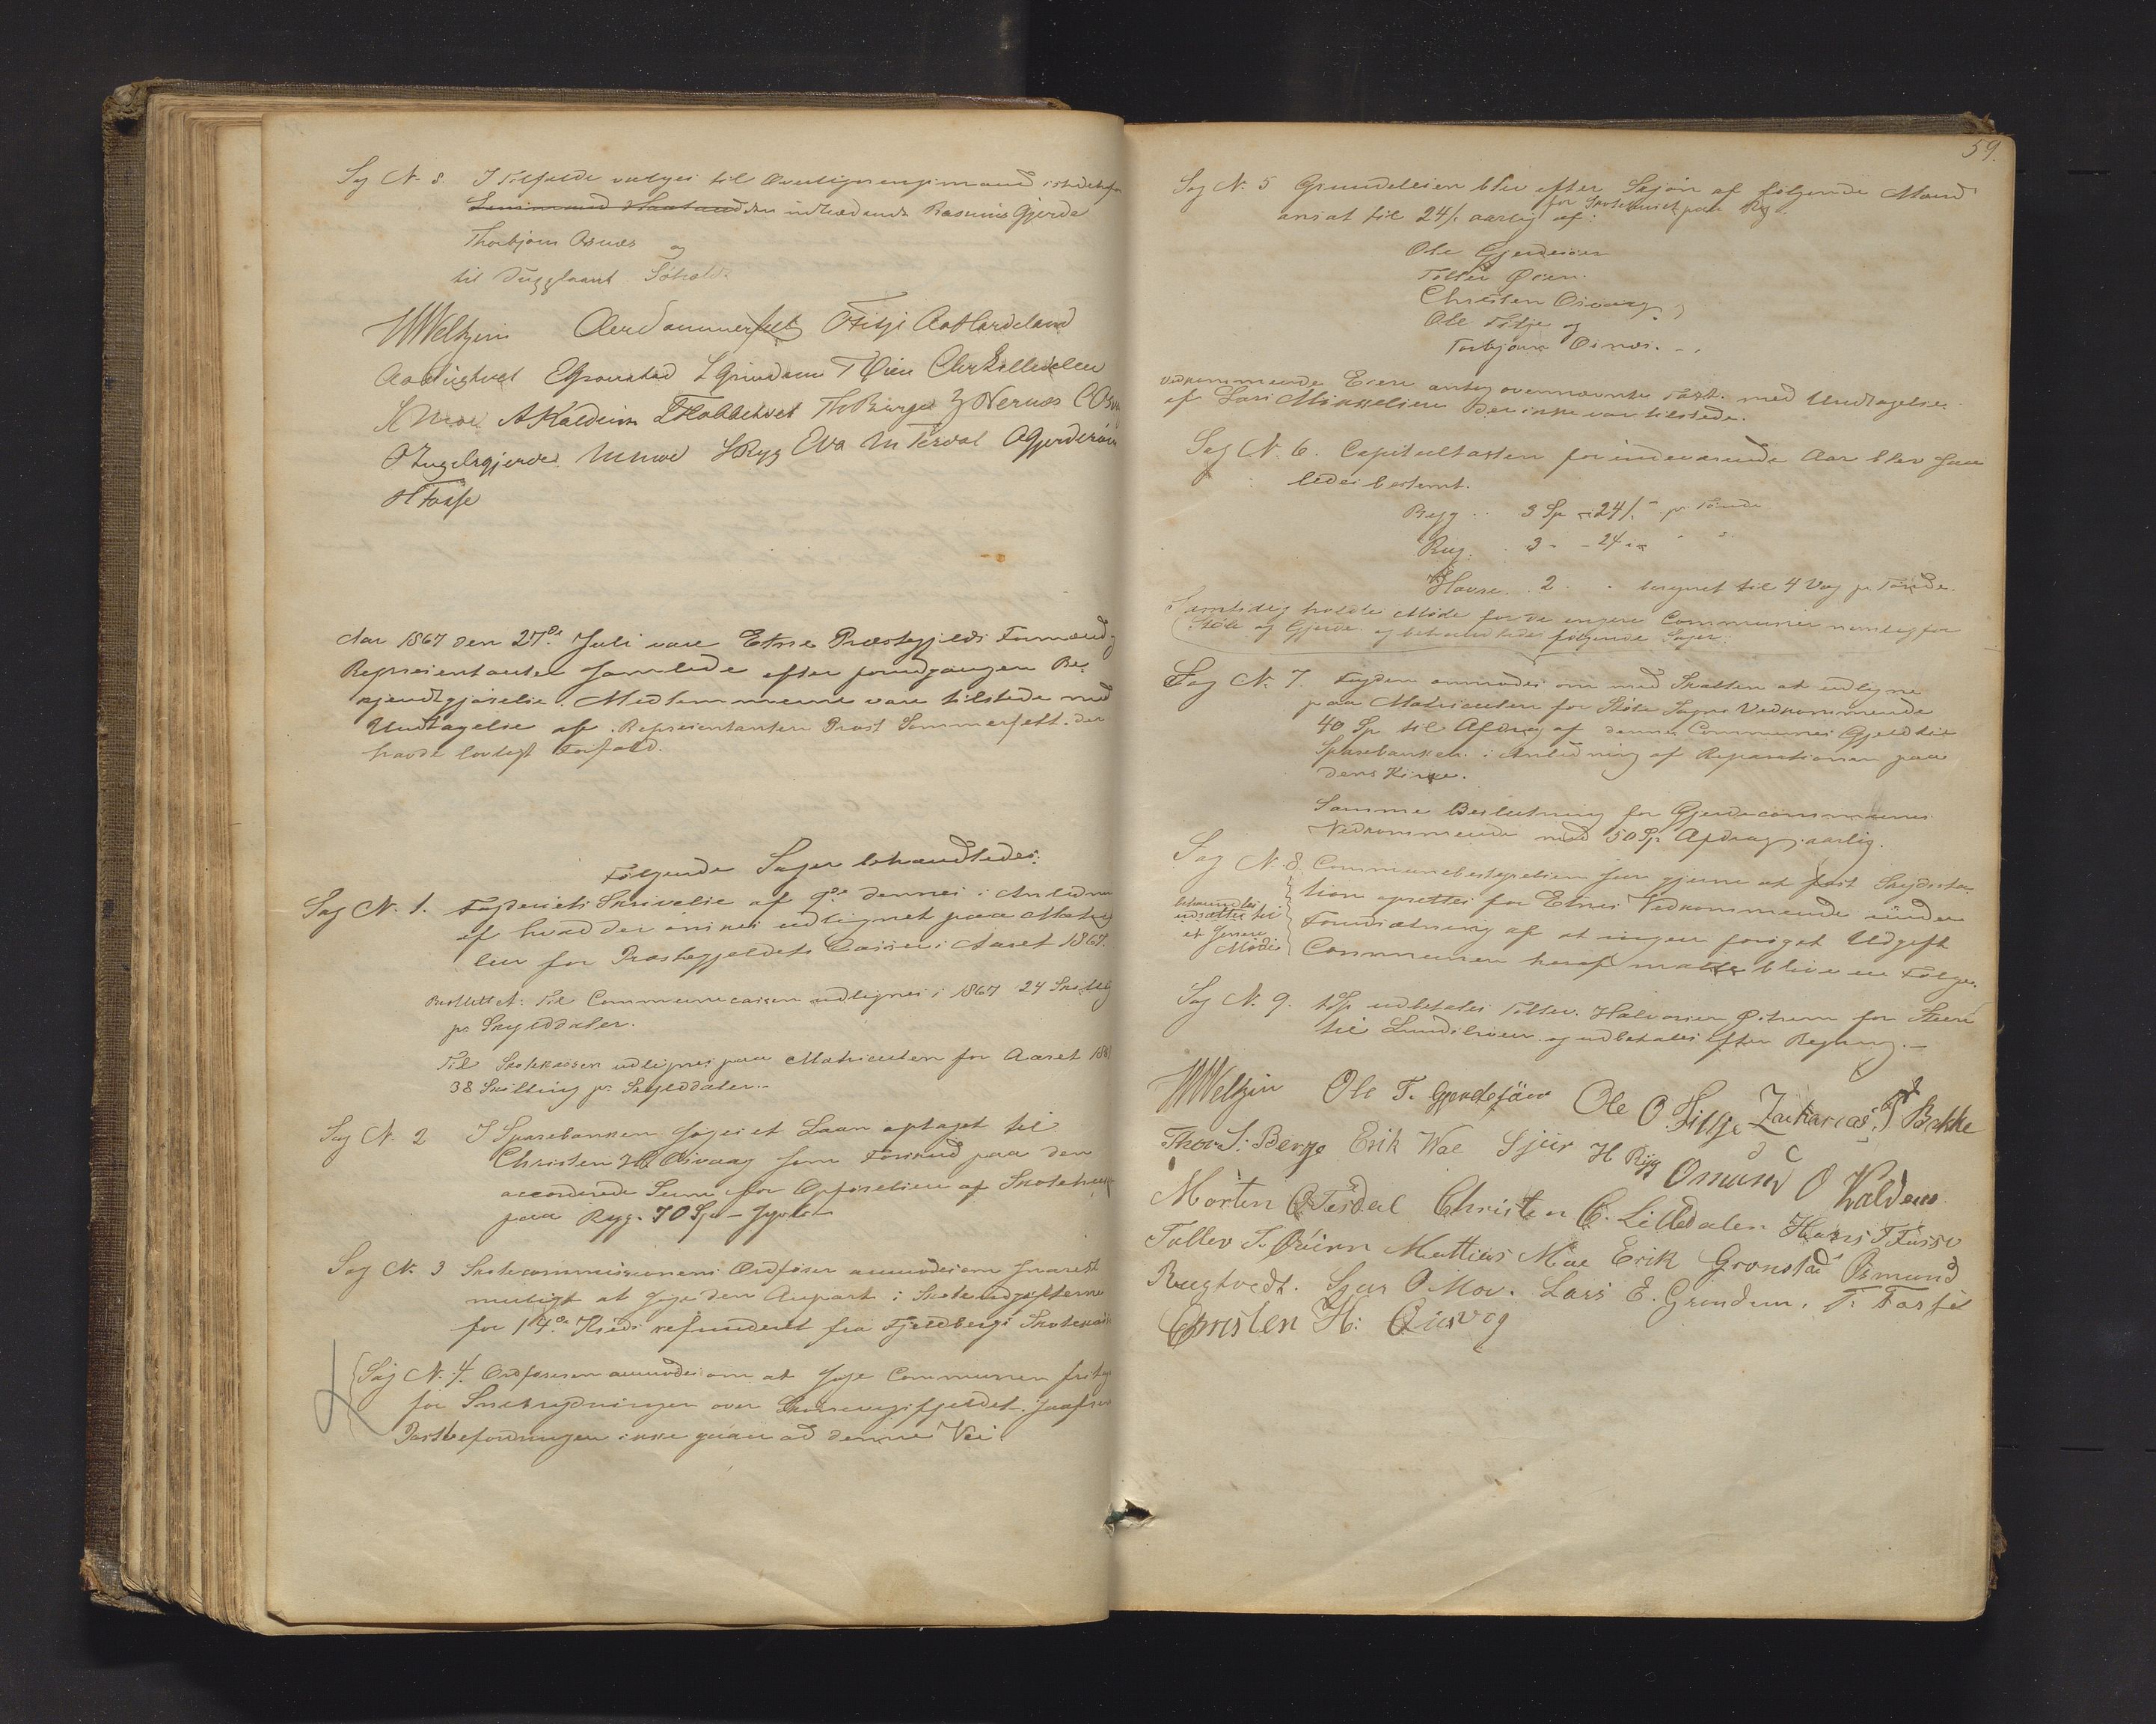 Sag N. 8. I Tilfælde vælges til Overligningsmand istedetfor
Lensmand Haaland den indtrædende Rasmus Gjerde
Thorbjørn Osnes og
til Suppleant
HWeltzin OFitje AaHardeland
EGronstad LGrindem TØien ChrLilledalen
AKaldeim ThBerge
OIngelsgjerde MMoe SRyg EVa MTesdal OGjerdesøen
HFosse
Aar 1867 den 27de Juli vare Etne Præstegjelds Formænd og
Repræsentanter samlede efter foregaaende Be-
kjendtgjørelse. Medlemmerne vare tilstede med
Undtagelse af Repræsentanten Provst Sommerfelt der
havde lovligt Forfald.
Følgende Sager behandledes:
Sag N. 1. Fogderiets Skrivelse af 9de dennes i Anledning
af hvad der ønskes udlignet paa Matriku-
len for Præstegjeldets Casser i Aaret 1867.
Besluttet: Til Communecassen udlignes i 1867 24 Skilling
pr Skylddaler.
Til Skolekassen udlignes paa Matriculen for Aaret 1867
38 Skilling pr Skylddaler.-
Sag N. 2 I Sparebanken søges et Laan optaget til
Christen H Øsvaag som Forskud paa den
accorderede Sum for Opførelsen af Skolehuset
paa Ryg. 70 Spd
Sag N. 3 Skolecommissionens Ordfører anmodes om snarest
muligt at søge den Anpart i Skoleudgifterne
for 14de Kreds refunderet fra Fjeldbergs Skolekasse
Sag N. 4. Ordføreren anmodes om at søge Communen fritaget
for Snebrydningen over fjeldet, saafremt
Postbefordringen ikke gaaer ad denne Vei.
59.
Sag N. 5 Grundleien blev efter Skjøn af følgende Mænd
for Skolehuset paa Ryg
ansat til 24 ß aarlig af:
Ole Gjerdesøen
Tollev Øien
Christen Øsvaag,
Ole Fitje og
Torbjørn Osnes. -
Vedkommende Eiere antog ovennævnte Taxt. med Undtagelse
af Lars Mikkelsen der ikke var tilstede.
Sag N. 6. Capiteltaxten for indeværende Aar blev saa
ledes bestemt.
Byg .. 3 Sp - 24 ß - pr Tønde
Rug. . 3 - - 24 - " "
Havre . 2 . . beregnet til 4 Vog pr Tønde.
Samtidig holdtes Møde for de engere Communer nemlig for
Støle og Gjerde og behandledes følgende Sager:
Sag N. 7. Fogden anmodes om med Skatten at udligne
paa Matriculen for Støle Sogns Vedkommende
40 Sp til Afdrag af denne Communes Gjeld til
Sparebanken i Anledning af Reparationen paa
dens Kirke.
Samme Beslutning for Gjerdecommunens
Vedkommende med 50 Sp Afdrag aarlig.
Sag N. 8. Communebestyrelsen saa gjerne at fast Skydssta-
tion oprettes for Etnes Vedkommende under
behandles
udsættes til
et senere
Møde
Forudsætning af at ingen forøget Udgift
Communen heraf maatte blive en Følge.
Sag N. 9. 1 Sp udbetales Tollev Halvorsen for Steen
til og udbetales efter Regning.-
HWeltzin Ole T. Gjerdesøen Ole O. Fitje Zacharias T Bakke
Thor S. Berge Erik Wae Sjur H Ryg Osmund O Kaldem
Morten O Tesdal Christen C. Lilledalen Hans T Fosse
Tollev S. Øien Mattias Moe Erik Gronstad Osmund
Rugtvedt. Sjur O Moe. Lars E. Grindem.
Christen H: Øisvog